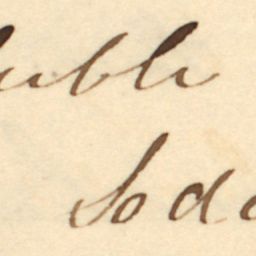 uble
Soda